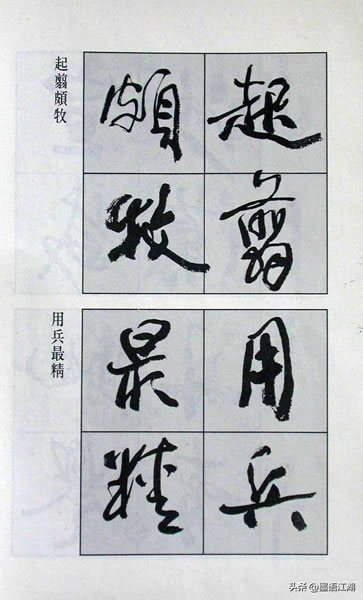 起翦
頗牧
起翦頗牧
用兵
最精
用兵最精
头条 @墨语江湖